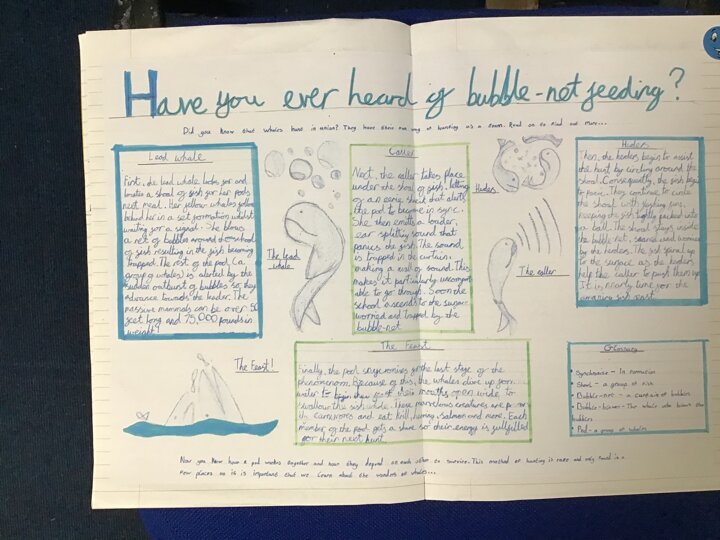 Have you ever heard of bubble-net feeding?
Did you know that whales hunt in unison? They have their own way of hunting as a team. Read on to find out more...
Lead whale
First, the lead whale looks for and
locates a shoal of fish for her pods
next meal. Her fellow whales follow
behind her in a set formation whilst
waiting for a signal. She blows
a net of bubbles around the shoal
of fish resulting in the fish becoming
trapped. The rest of the pod (a
group of whales) is alerted by the
sudden outburst of bubbles so they
advance towards the leader. The
massive mammals can be over 50
feet long and 79,000 pounds in
weight!
The lead
whale
Caller
Next, the caller takes place
under the shoal of fish, letting
of an eerie shriek that alerts
the pod to become in sync.
She then emits a louder,
ear splitting sound that
panics the fish. The sound
is trapped in the curtain
making a wall of sound. This
makes it particularly uncomfort-
able to go through. Soon the
school ascends to the surface
worried and trapped by the
bubble-net
Herders
The caller
Herders
Then, the herders begin to assist
the hunt by circling around the
shoal. Consequently, the fish begin
to panic. They continue to circle
the shoal with flashing fins,
keeping the fish tightly packed into
a ball. The shoal stays inside
the bubble net, scared and worried
by the herders. The fish spiral up
to the surface as the herders
help the caller to push them up.
It is nearly time for the
amazing fish feast.
The Feast!
The Feast
Finally, the pod synchronises for the last stage of the
phenomenon. Because of this, the whales dive up from
water to begin their feast their mouths open wide, to
swallow the fish whole. These marvelous creatures are
carnivores and eat krill, herring, salmon and more. Each
member of the pod gets a share so their energy is fullfilled
for their next hunt.
Glossary
Synchronise - In formation
Shoal - a group of fish
Bubble-net - a curtain of bubbles
Bubble-blower - The whale who blows the
bubbles
Pod - a group of whales
Now you know how a pod works together and how they depend on each other to survive. This method of hunting is rare and only found in a
few places so it is important that we learn about the wonders of whales...